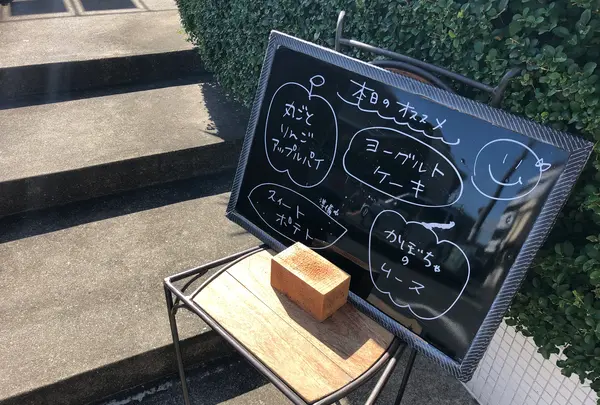 本日のオススメ
丸ごと
りんご
アップルパイ
ヨーグルト
ケーキ
スイート
ポテト
準備中
かぼちゃ
の
ムース